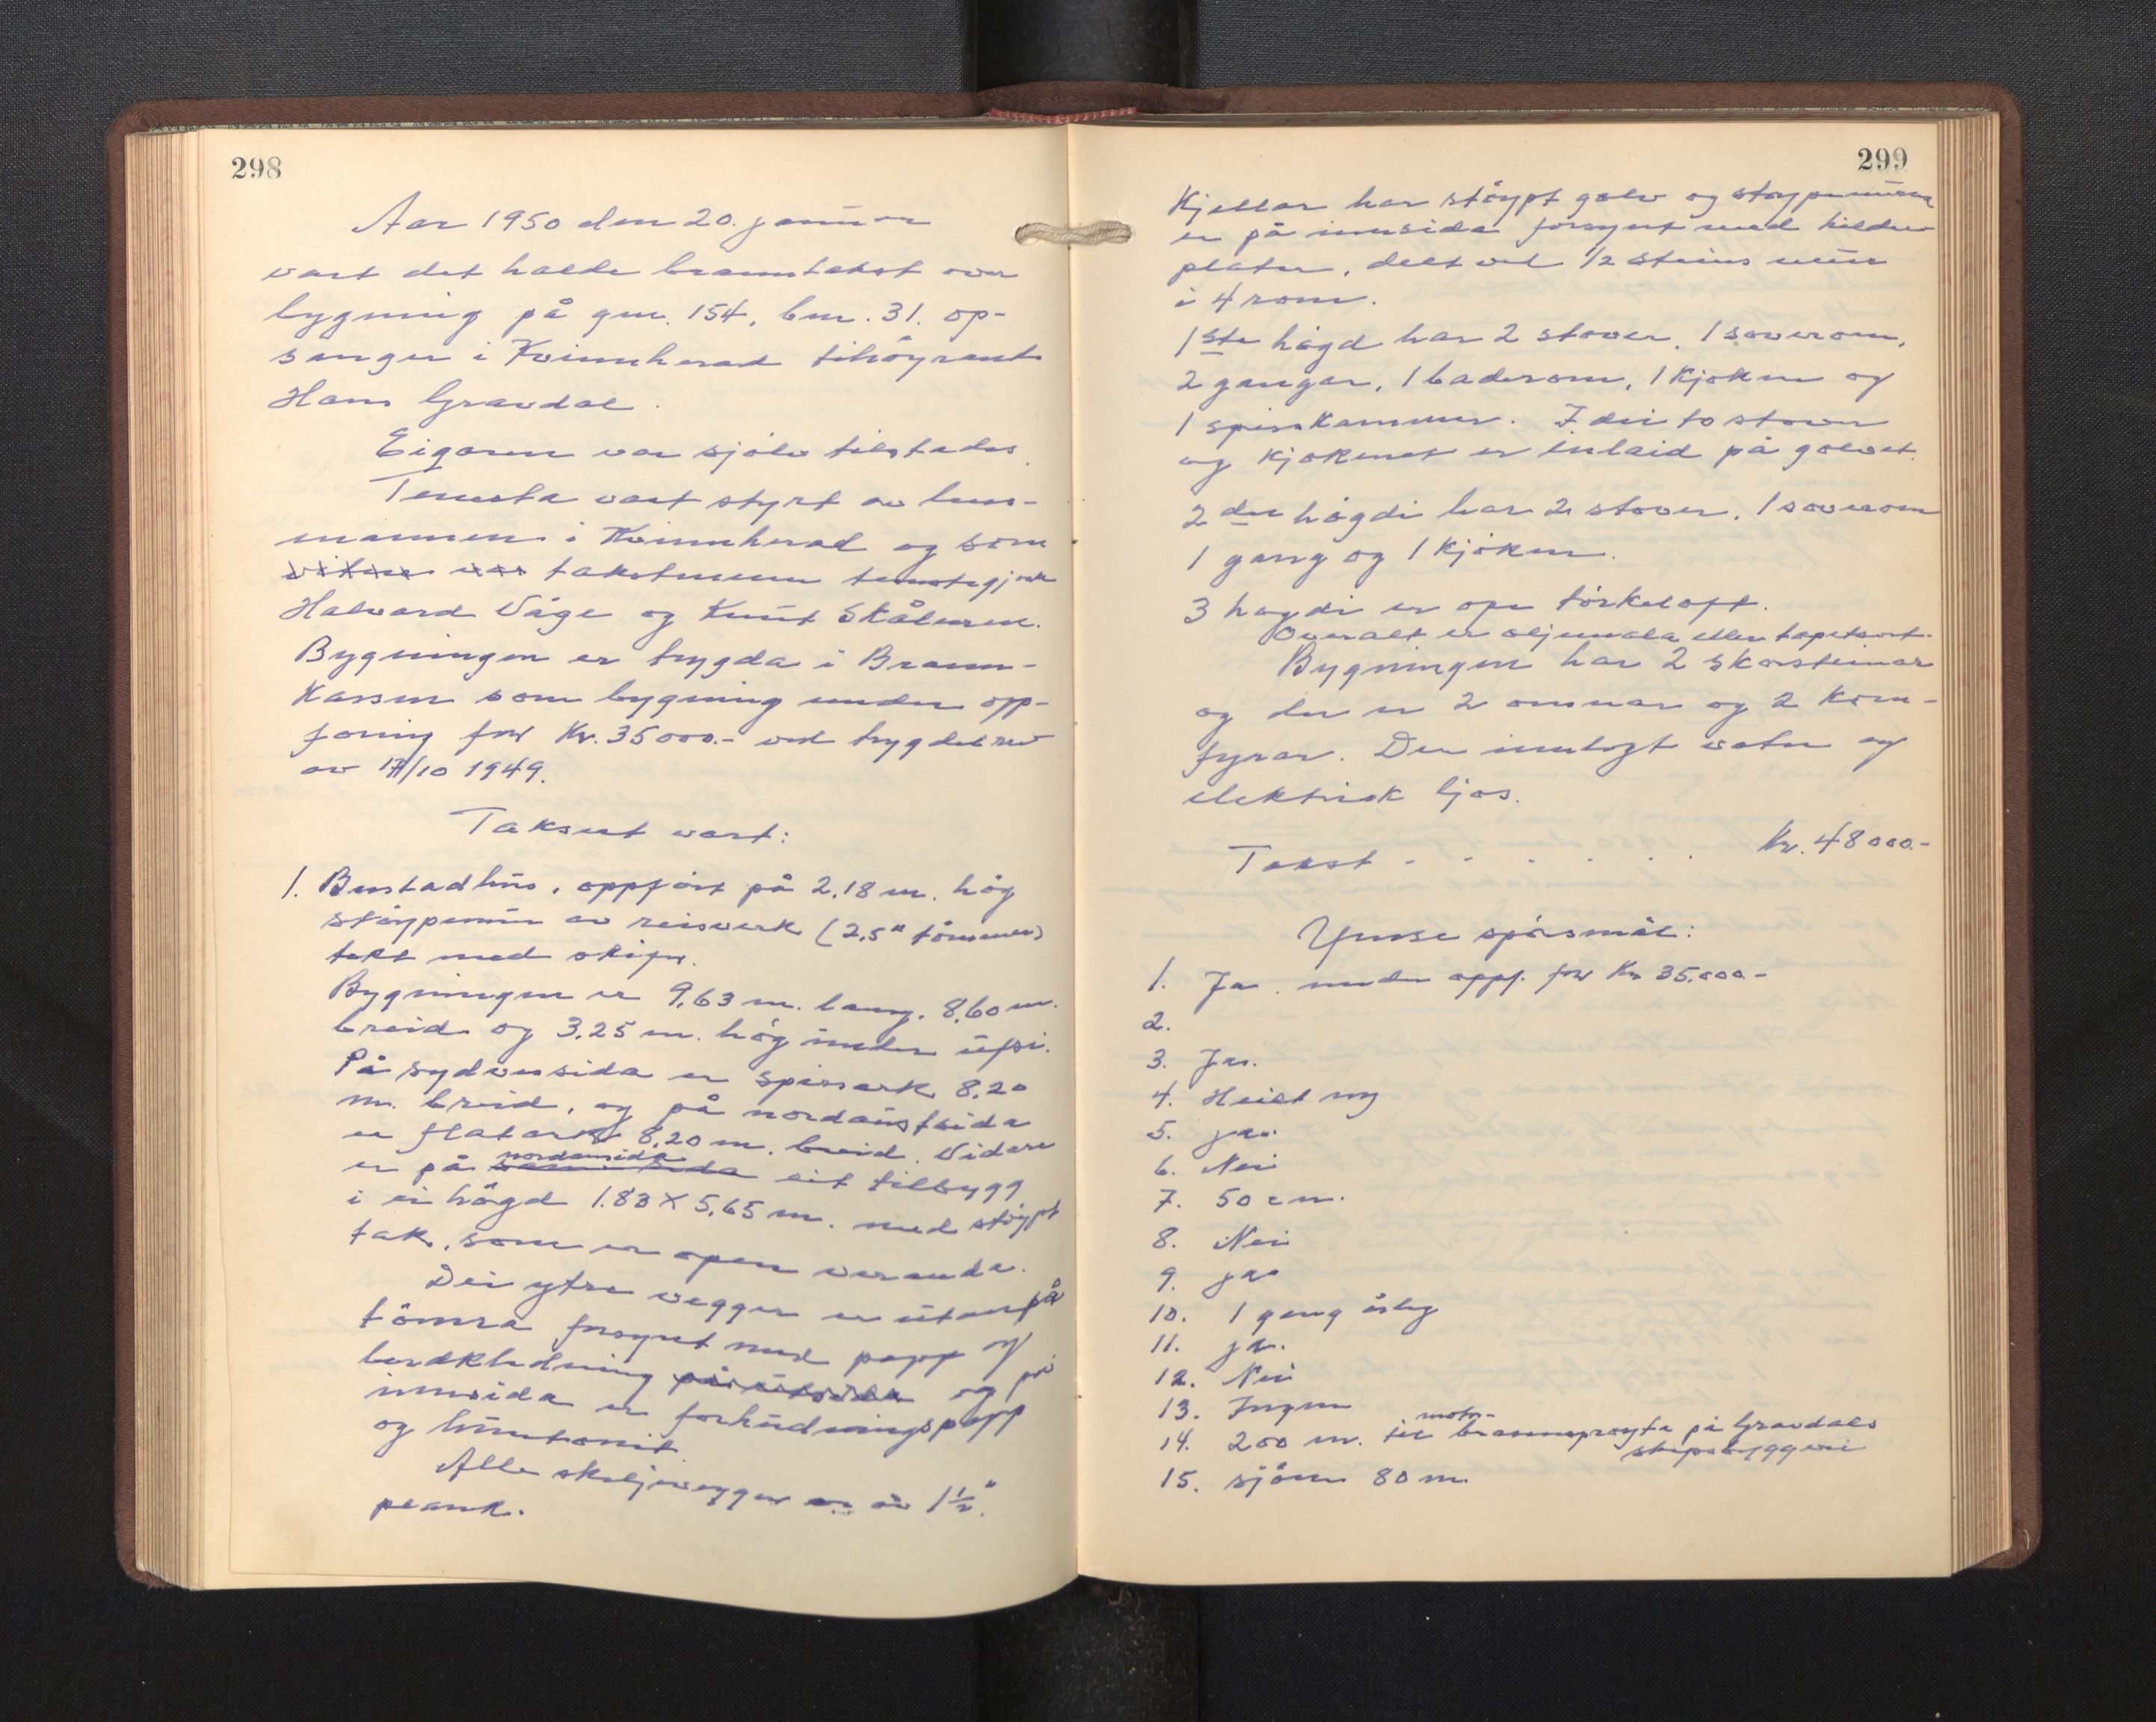 298
Aar 1950 den 20. januar
vart det halde branntakst over
bygning på gnr. 154, bnr. 31. op-
sanger i Kvinnherad tilhøyrant
Hans Gravdal.
Eigaren var sjølv tilstades.
Tenesta vart styrt av lens-
mannen i Kvinnherad og som
vitne var takstmenn tenestegjorde
Halvard Våge og Knut Skålnren.
Bygningen er trygda i Brann-
kassen som bygning under opp-
føring for Kr. 35000.- ved trygdebrev
av 17/10 1949.
Taksert vart:
1. Bustadhus, oppført på 2,18 m. høg
støypemur av reisverk (2,5" tømmer)
tekt med skifer.
Bygningen er 9,63 m. lang, 8,60 m.
breid og 3,25 m. høg under ufsi.
På sydvesida er spissark 8,20
m. breid, og på nordaustsida
er flatark 8,20 m. breid. Vidare
nordausida
er på samme sida eit tilbygg
i ei høgd 1.83 X 5,65 m. med støypt
tak, som er open veranda.
Dei ytre vegger er utanpå
tømra forsynt med papp og
bordkledning på utsida og på
innsida er forhudningspapp
og huntonit.
Alle skiljevegger er av 1½"
plank.
299
Kjellar har støypt golv og støypemuren
er på innsida forsynt med kilden
plater, delt ved 1/2 steins mur
i 4 rom.
1ste høgd har 2 stover, 1 soverom,
2 gangar, 1 baderom, 1 kjøken og
1 spisskammer. I dei to stover
og kjøkenet er inlaid på golvet.
2den høgdi har 2 stover, 1 soverom
1 gang og 1 kjøken.
3 høgdi er ope tørkeloft.
Overalt er oljemala eller tapetsert.
Bygningen har 2 skorsteinar
og der er 2 omnar og 2 kom-
fyrar. Der innlagt vatn og
elektrisk ljos.
Takst - - - . . . Kr. 48000.-
Ymse spørsmål:
1. Ja. under oppf. for Kr 35.000-
2.
3. Ja.
4. Heilt ny
5. ja.
6. Nei
7. 50 cm.
8. Nei
9. ja
10. 1 gang årleg
11. ja.
12. Nei
13. Ingen
motor-
14. 200 m. til brannsprøyta på Gravdals
skipsbyggeri
15. sjøen 80 m.